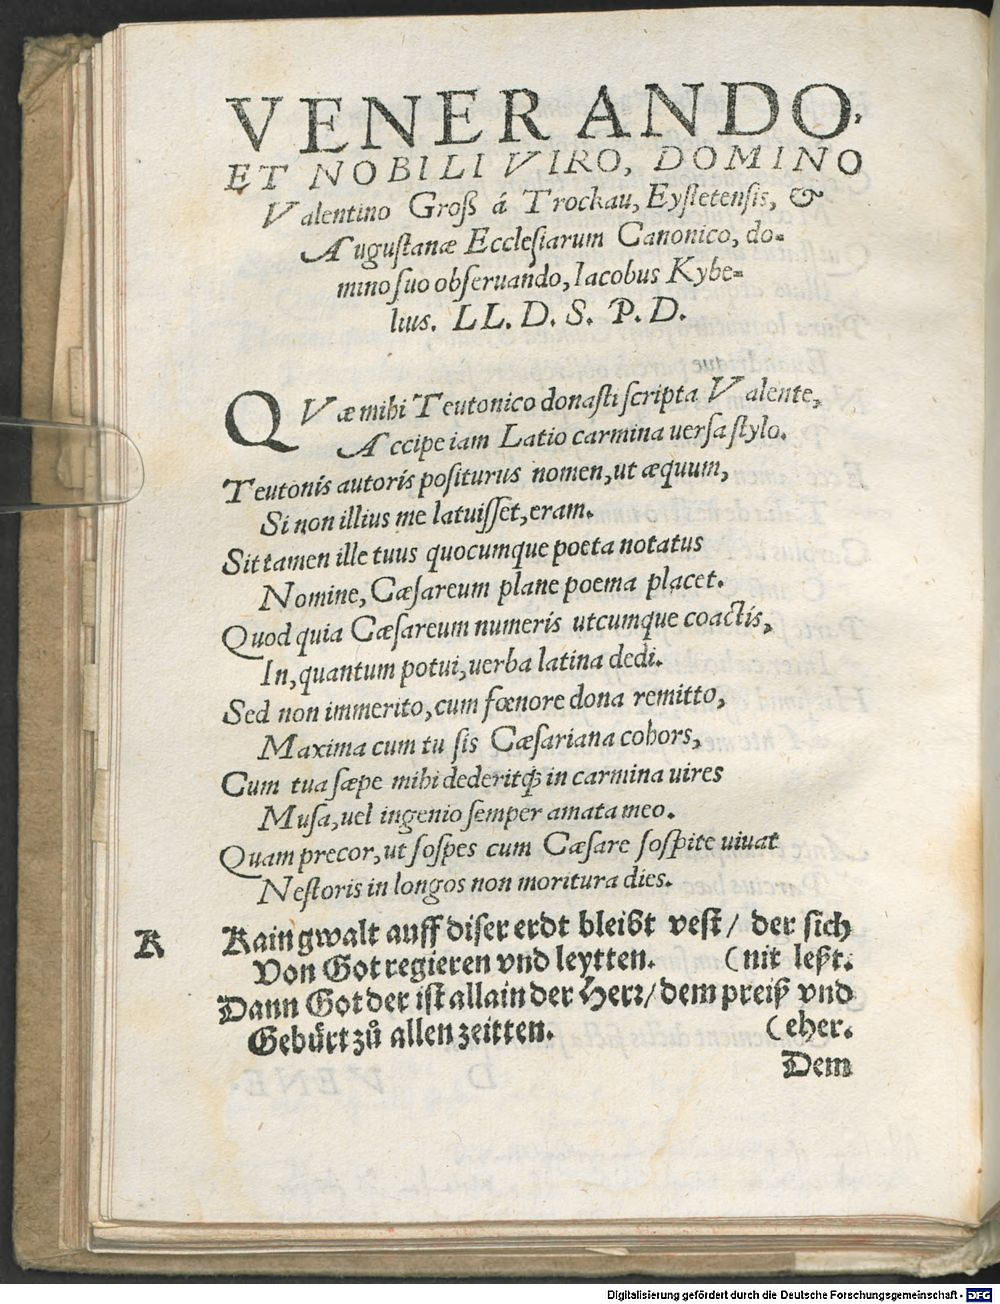 VENERANDO,
ET NOBILI VIRO, DOMINO
Valentino Groß á Trockau, Eyſtetenſis, &
Auguſtanæ Eccleſiarum Canonico, do-
mino ſuo obſeruando, Iacobus Kybe-
lius. LL. D. S. P. D.
QVæ mihi Teutonico donaſti ſcripta Valente,
Accipe iam Latio carmina uerſa ſtylo.
Teutonis autoris poſiturus nomen, ut æquum,
Si non illius me latuiſſet, eram.
Sit tamen ille tuus quocumque poeta notatus
Nomine, Cæſareum plane poema placet.
Quod quia Cæſareum numeris utcumque coactis,
In, quantum potui, uerba latina dedi.
Sed non immerito, cum fœnore dona remitto,
Maxima cum tu ſis Cæſariana cohors,
Cum tua ſæpe mihi dederitq́; in carmina uires
Muſa, uel ingenio ſemper amata meo.
Quam precor, ut ſoſpes cum Cæſare ſoſpite uiuat
Neſtoris in longos non moritura dies.
K Kain gwalt auff diſer erdt bleibt veſt/ der ſich
Von Got regieren vnd leytten. (nit leßt.
Dann Got der iſt allain der Herꝛ/ dem preiß vnd
Gebürt zů allen zeitten. (eher.
Dem
Digitalisierung gefördert durch die Deutsche Forschungsgemeinschaft - DFG